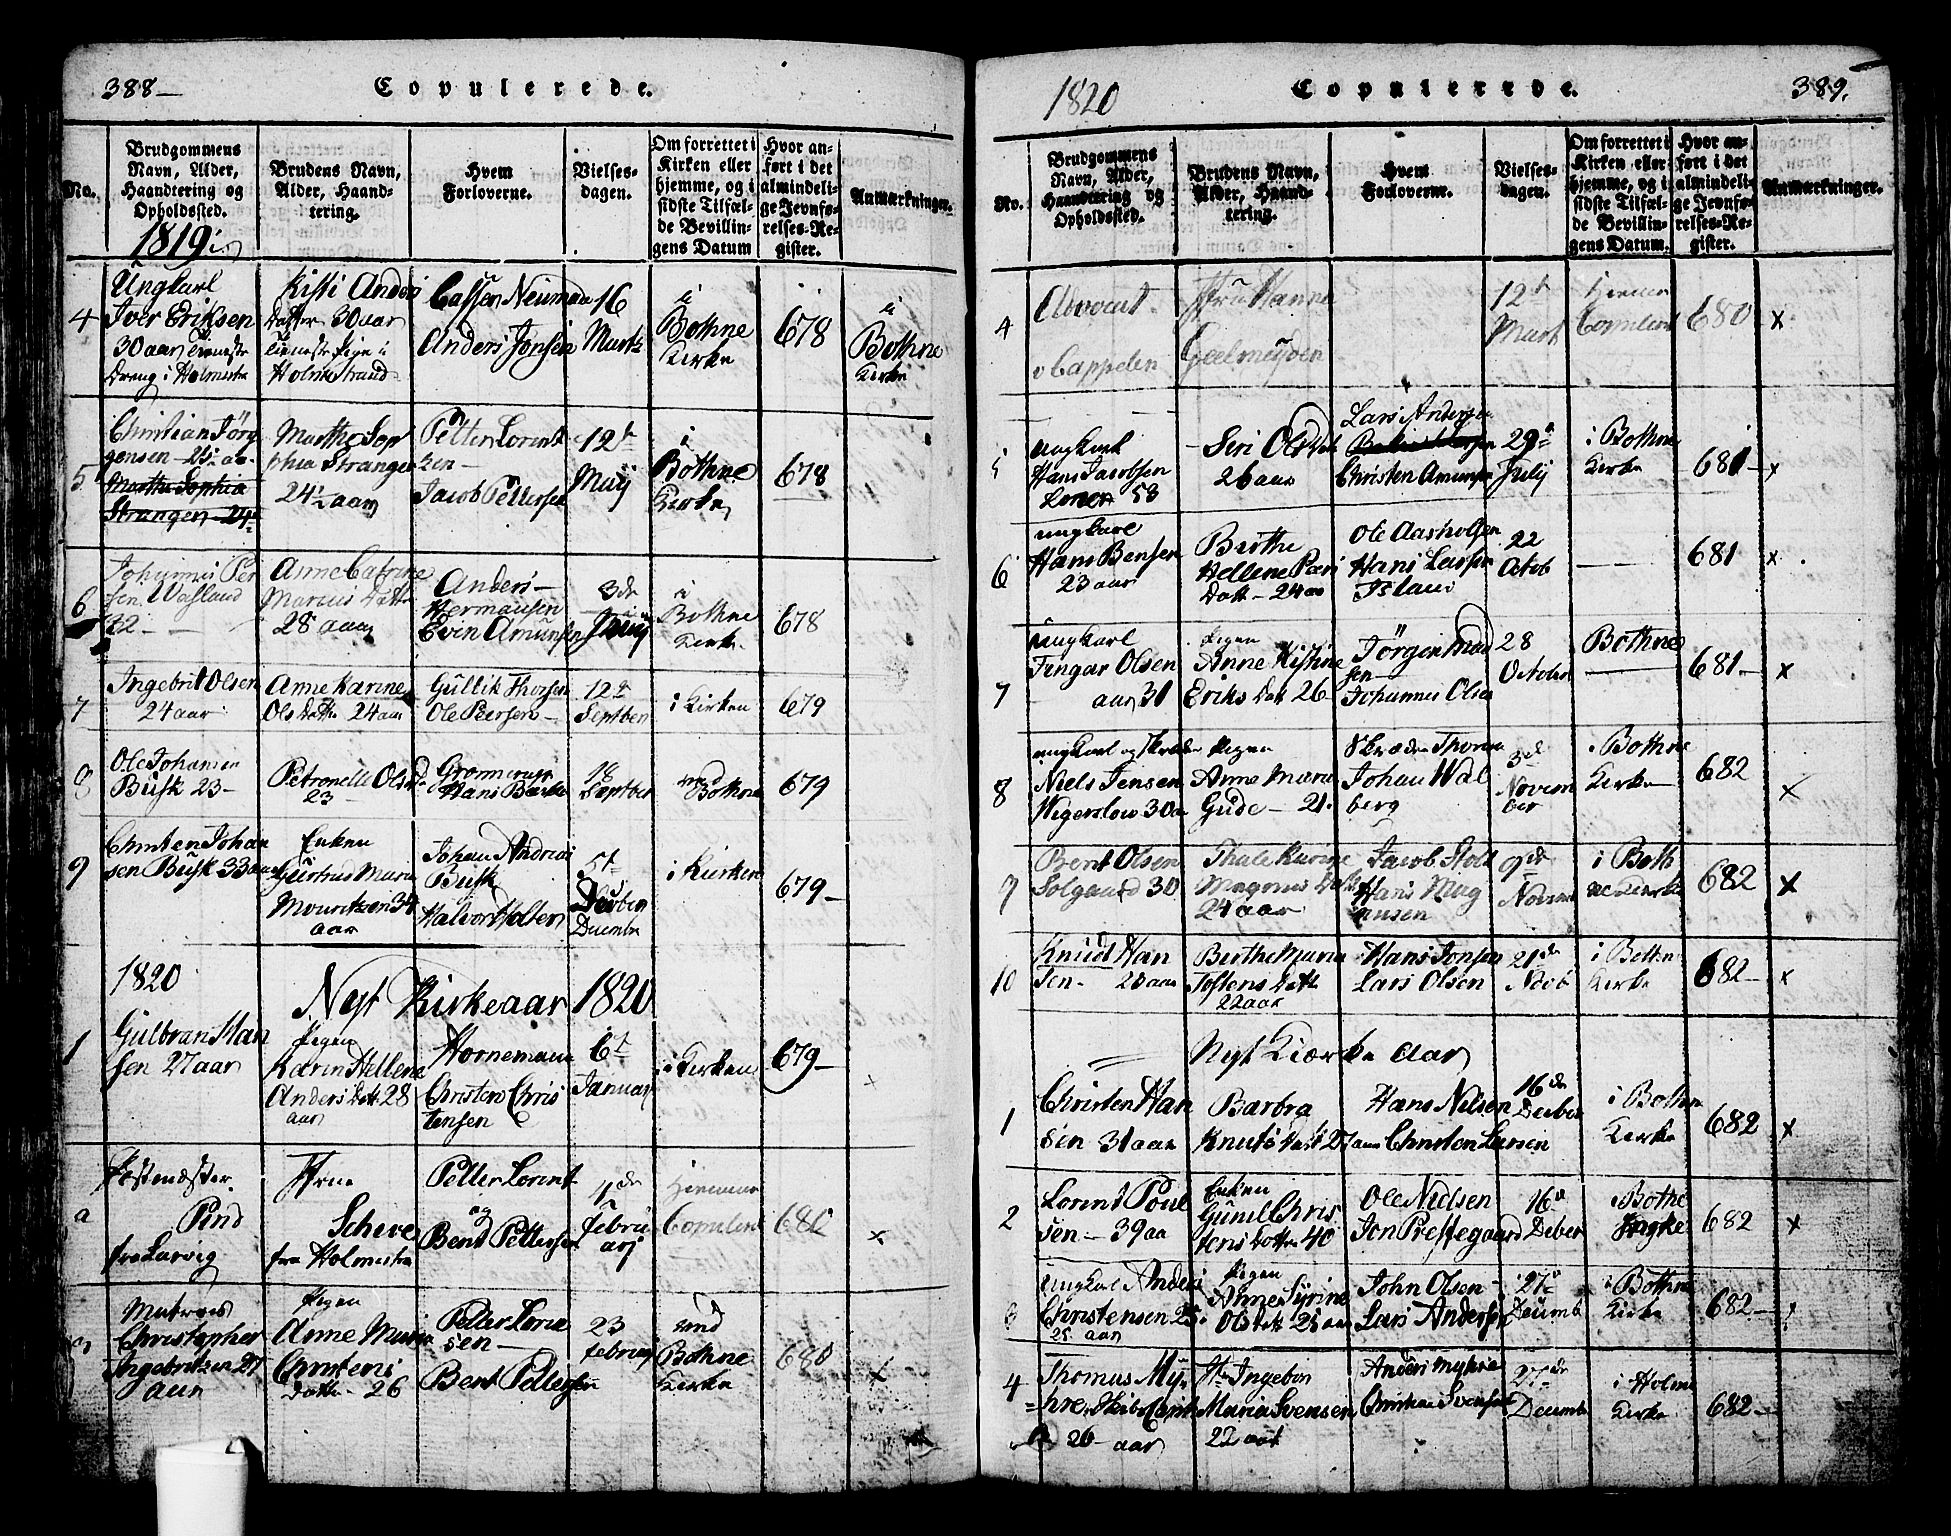 388-
Copulerede.
No.
Brudgommens
Navn, Alder,
Haandtering og
Opholdssted.
1819
Brudens Navn,
Alder, Haand-
tering.
Hvem
Forloverne.
Vielses-
dagen.
Om forrettet i
Kirken eller
hjemme, og i
sidste Tilfæl-
de Bevillin-
gens Datum
Hvor an-
ført i det
almindeli-
ge Jevnfø-
relses-Re-
gister.
Anmærkninger.
4
Ungkarl
Iver Eriksen
30 aar
Dreng i Holmestr
Kisti Anders
Datter 30 aar
Tieneste Pige i
Holmestrand
Cassen Neuman
Anders Jonsen
16
Marts
i
Bothne
Kirke
678
i
Bothne
Kirke
5
Christian Jörg
gensen
Marthe Sophia
Strangen 24
Marthe Sop
phia Stranger
24½ aar
Petter Lorent
zen
Jacob Pettersen
12t
Maij
i
Bothne
Kirke
678
6
Johannes Per
sen Wasland
32
Anne Catrine
Marcus Datter
28 aar
Anders
Hermansen
Evin Amunsen
3de
i
Bothne
Kirke
678
7
Ingebrit Olsen
24 aar
Anne Karine
Ols Datter 24 aar
Gullik Thorsen
Ole Peersen
12te
Septber
i Kirken
679
8
Ole Johansen
Busk 23
Petronelle Olsd
23
Hans Bache
18
Septber
ved
Bothne
679
9
Christen Johan
sen Busk 33 aar
Enken
Gurtrud Maria
Mouritzen 34
aar
Johan Andreas
Busk
Halvor Holtesen
5t
Decber
Decembr
i Kirken
679
1820
Nyt Kirkeaar 1820
1
Gulbran Han
sen 27 aar
Pigen
Karin Hellene
Anders Datt 28
aar
Hornemann
Christen Chris
tensen
6t
Januar
i Kirken
679
x
2
Postmester
Pind
fra Larvig
Frue
Scheve
fra Holmestra
Petter Lorent
og
Bent Pettersen
1de
Febru
arj
Copuleret
680
x
3
Matros
Christopher
Ingebritzen 27
aar
Pigen
Anne Maria
Christens
Datter 26
Petter Loren
sen
Bent Pettersen
23
februarj
ved
Bothne
Kirke
680
x
1820
Copulerede.
389.
No.
Brudgommens
Navn, Alder,
Haandtering og
Opholdssted.
Brudens Navn,
Alder, Haand-
tering.
Hvem
Forloverne.
Vielses-
dagen.
Om forrettet i
Kirken eller
hjemme, og i
sidste Tilfæl-
de Bevillin-
gens Datum.
Hvor an-
ført i det
almindeli-
ge Jevnfø-
relses-Re-
gister.
Anmærkninger.
4
Advocat
v Cappelen
Fru Hanne
Geelmuyden
12t
Mart
Copuleret
680
x
5
Ungkarl
Hans Jacobsen
58
Siri Olsdatt
26 aar
Lars Andersen
Christen Amunsen
29
Julij
i Bothne
Kirke
681
x
6
ungkarl
Hans Bensen
23 aar
Berthe
Hellene Lars
Datt 24 aar
Ole Aasholtsen
Hans Larsen
22
Octob
681
x
7
Ungkarl
Tingar Olsen
aar 31
Pigen
Anne Kistine
Eriks Datt 26
Jörgen Mad
sen
Johannes Olsen
28
October
Bothne
681
x
8
ungkarl og Skreder
Niels Jensen
Wegersløw 30 a
Pigen
Anne Maria
Gude - 21
Johan Wal
berg
3de
Novem
ber
i Bothne
Kirke
682
x
9
Bent Olsen
Solgaard 30
Thale Karine
Magnus Datter
24 aar
Jacob Holt
Hans Mag
nusen
9de
Novem
i Both
ne Kirke
682
x
10
Knud Han
sen 28 aar
Berthe Maria
Tostens Datt
22 aar
Hans Jonsen
Lars Olsen
21de
Novb
i Bothne
Kirke
682
x
Nyt Kiærke aar
1
Christen Han
sen 31 aar
Barbra
Knuts Datt 27 aar
Hans Nilsen
Christen Larsen
16de
Decber
i Bothne
Kirke
682
x
2
Lorent Poul
sen - 39 aa
Enken
Gunil Chris
tens Datter 40
Ole Nielsen
Jon Prestegaard
16d
Decber
i Bothne
682
x
3
Ungkarl Anders
Christensen 25
25 aar
Pigen
Anne Syrine
Ols Datt 25 aar
John Olsen
Lars Andersen
27d
Decemb
i Bothne
Kirke
682
4
Thomas My
hre
26 aar
Ingebor
Maria Svensen
22 aar
Anders Myhre
Christian Svensen
27de
Decemb
i Holme
Kirke
682